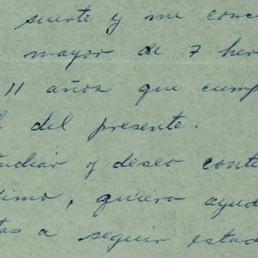 suerte y me conc
mayor de 7 her
11 años que cump
del presente.
tudiar y deseo conti
simo, quiero ayud
tas a seguir estud